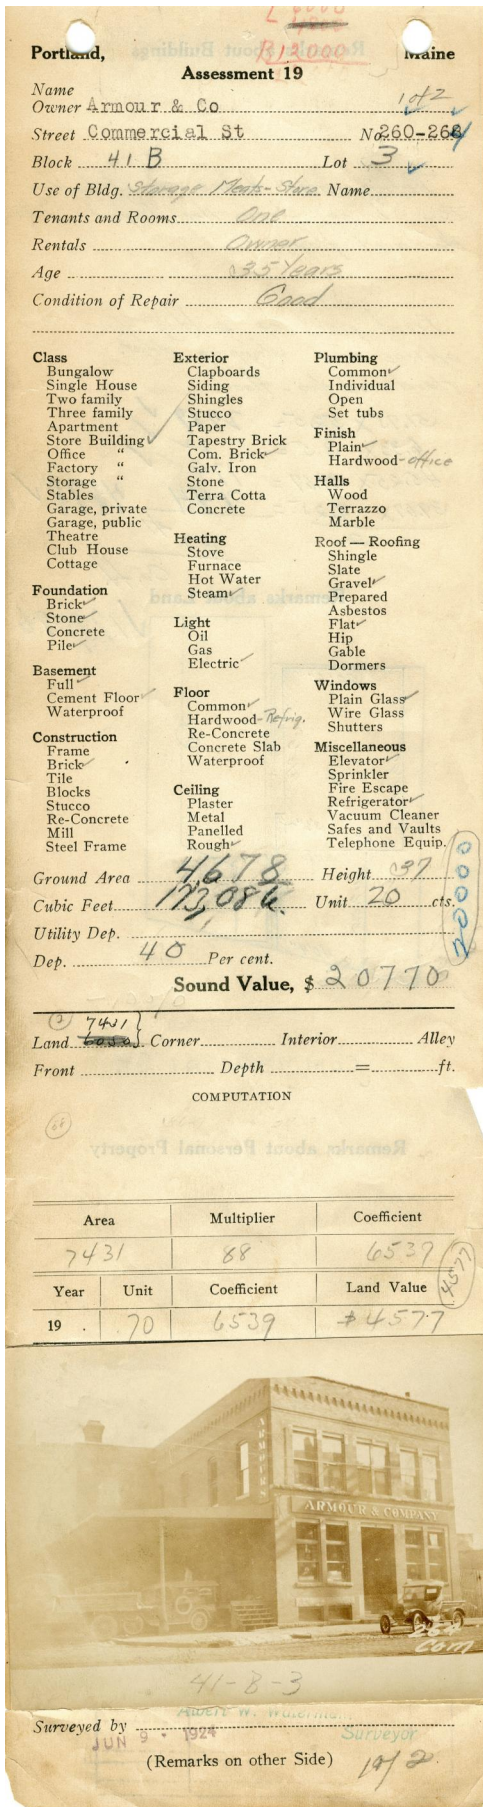 L 6000
4800
B12000
Portland, Maine
Assessment 19
Name
Owner Armour & Co 1 of 2
Street Commercial St No. 260-264
Block 41 B Lot 3
Use of Bldg. Storage Meats-Store Name
Tenants and Rooms One
Rentals Owner
Age 35 Years
Condition of Repair Good
Class
Bungalow
Single House
Two family
Three family
Apartment
Store Building ✓
Office "
Factory "
Storage "
Stables
Garage, private
Garage, public
Theatre
Club House
Cottage
Foundation
Brick ✓
Stone ✓
Concrete
Pile ✓
Basement
Full ✓
Cement Floor ✓
Waterproof
Construction
Frame
Brick ✓
Tile
Blocks
Stucco
Re-Concrete
Mill
Steel Frame
Exterior
Clapboards
Siding
Shingles
Stucco
Paper
Tapestry Brick
Com. Brick ✓
Galv. Iron
Stone
Terra Cotta
Concrete
Heating
Stove
Furnace
Hot Water
Steam ✓
Light
Oil
Gas
Electric ✓
Floor
Common ✓
Hardwood - Refrig.
Re-Concrete
Concrete Slab
Waterproof
Ceiling
Plaster
Metal
Panelled
Rough ✓
Plumbing
Common ✓
Individual
Open
Set tubs
Finish
Plain ✓
Hardwood - office
Halls
Wood
Terrazzo
Marble
Roof — Roofing
Shingle
Slate
Gravel ✓
Prepared
Asbestos
Flat ✓
Hip
Gable
Dormers
Windows
Plain Glass ✓
Wire Glass
Shutters
Miscellaneous
Elevator ✓
Sprinkler
Fire Escape
Refrigerator ✓
Vacuum Cleaner
Safes and Vaults
Telephone Equip.
Ground Area 4,678 Height 37
Cubic Feet 173,086. Unit 20 cts.
20000
Utility Dep.
Dep. 40 Per cent.
Sound Value, $ 20770
7431
Land Corner Interior Alley
Front Depth = ft.
COMPUTATION
68
Remarks about Personal Property
Area Multiplier Coefficient
7431 88 6539
Year Unit Coefficient Land Value 4577
19 . .70 6539 $4577
ARMOUR
ARMOUR & COMPANY
264
Com
41-B-3
Albert W. Waterman
Surveyed by
JUN 9 - 1924 Surveyor
(Remarks on other Side) 1 of 2